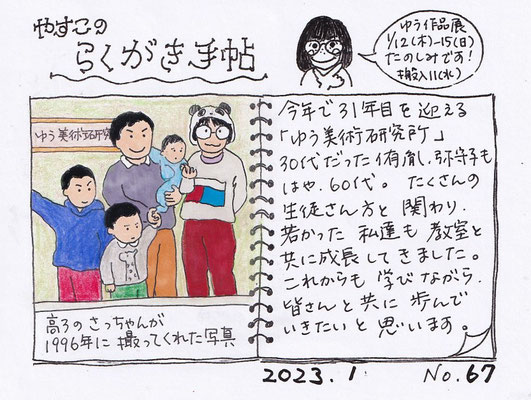 やすこの
らくがき手帖
ゆう作品展
1/12(木)-15(日)
たのしみです!
搬入11(水)
ゆう美術研究
今年で31年目を迎える
「ゆう美術研究所」
30代だった侑胤、弥守子も
はや、60代。たくさんの
生徒さん方と関わり、
若かった私達も教室と
共に成長してきました。
これからも学びながら、
皆さんと共に歩んで
いきたいと思います。
高3のさっちゃんが
1996年に撮ってくれた写真
2023.1 No.67